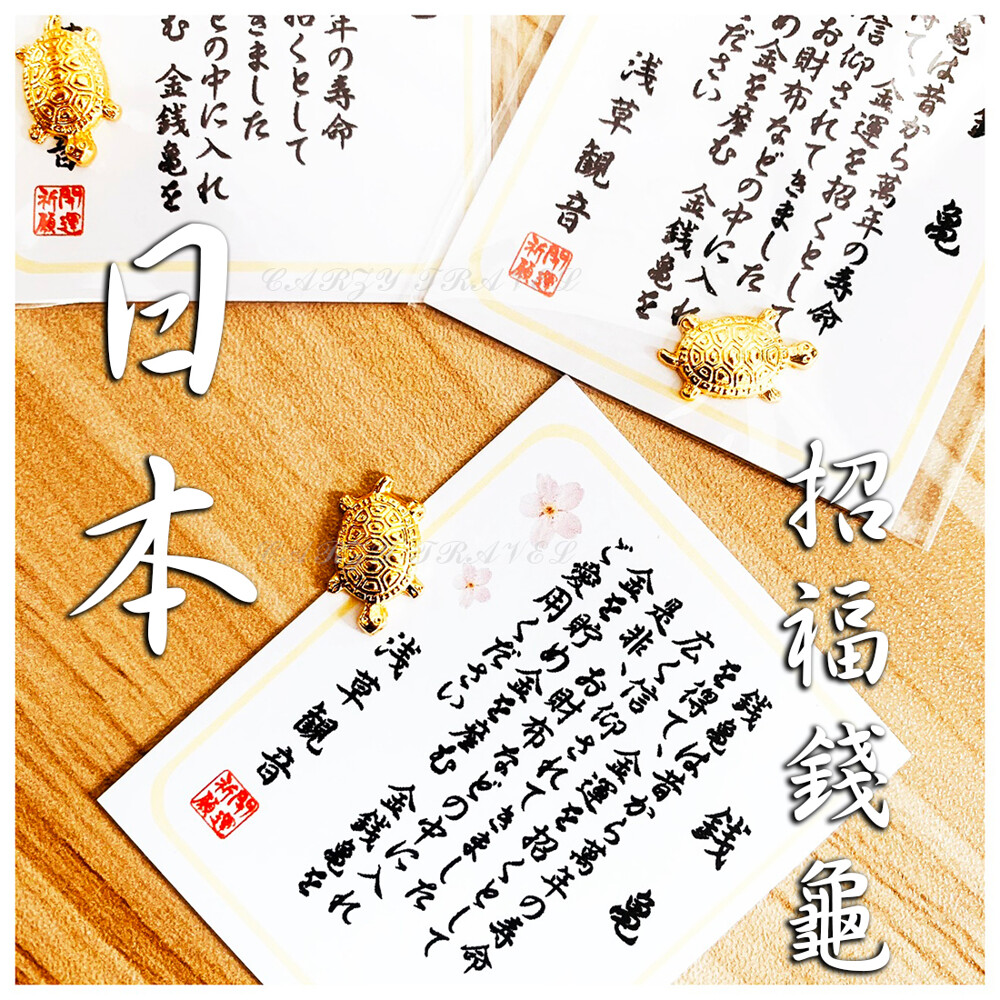 日本
招福錢龜
年の寿命
招くとして
きました
どの中に入れ
む 金銭亀を
音
開運
祈願
亀
亀は昔から萬年の寿命
得て、金運を招くとして
信仰されてきました
お財布などの中に入れ
め金を産む 金銭亀を
ださい
浅草観音
開運
祈願
銭亀
銭亀は昔から萬年の寿命
を得て、金運を招くとして
広く信仰されてきました
是非、お財布などの中に入れ
金を貯め金を産む 金銭亀を
ご愛用ください
浅草観音
開運
祈願
CARZY TRAVEL
CARZY TRAVEL